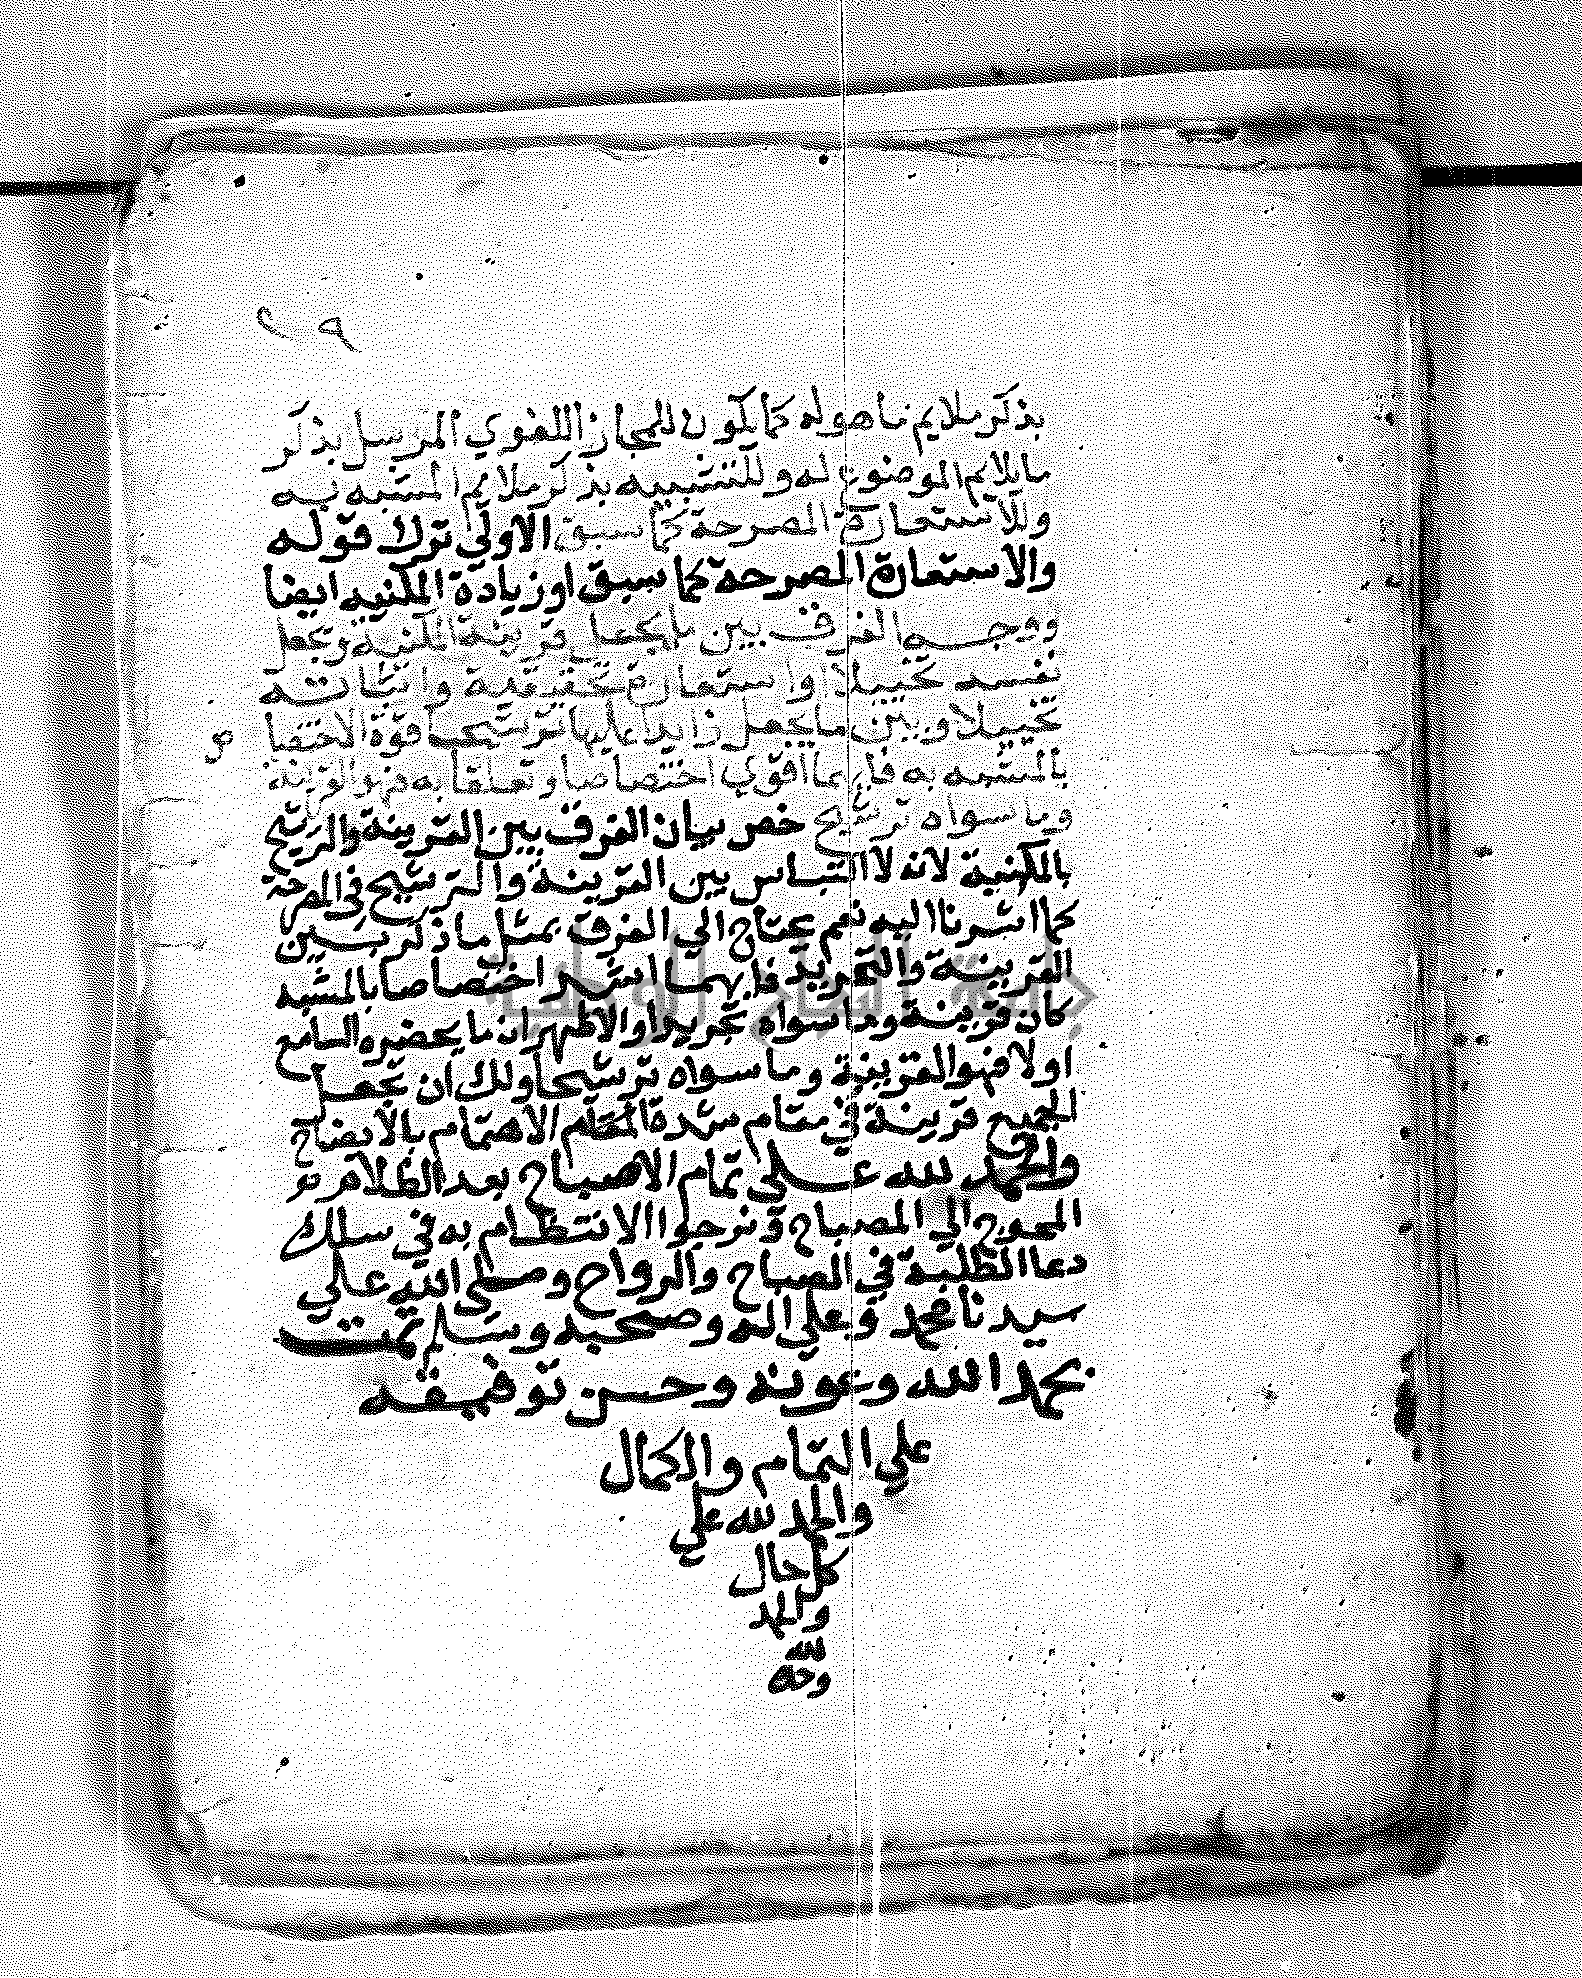 ٢٩
بذكر ملايم ما هو له كما يكون للمجاز اللغوي المرسل بذكر
ما يلايم الموضوع له وللتشبيه بذكر ملايم المشبه به
وللاستعارة المصرحة كما سبق الاولي ترك قوله
والاستعارة المصرحة كما سبق او زيادة المكنيه ايضا
ووجه الفرق بين ما يجعل قرينة المكنية ويجعل
نفسه تخييلا او استعارة تحقيقية او اثباته
تخييلا وبين ما يجعل زايدا عليها ترشيحا قوة الاختصا
ص
بالمشبه به فايهما اقوي اختصاصا وتعلقا به فهو القرينة
وما سواه ترشيح خص بيان الفرق بين القرينة والترشيح
بالمكنية لانه لا التباس بين القرينة والترشيح في المصرحة
كما اشرنا اليه نعم يحتاج الي الفرق بمثل ما ذكر بين
القرينة والتجريد فايهما اشد اختصاصا بالمشبه
كان قرينة وما سواه تجريدا والاظهر ان ما يحضره السامع
اولا فهو القرينة وما سواه ترشيحا ولك ان تجعل
الجميع قرينة في مقام شدة الاهتمام بالايضاح
والحمد لله علي تمام الاصباح بعد الظلام
المحوج الي المصباح ونرجوا الانتظام به في سلك
دعا الطلبة في الصباح والرواح وصلي الله علي
سيدنا محمد وعلي اله وصحبه وسلم تمت
بحمد الله وعونه وحسن توفيقه
علي التمام والكمال
والحمد لله علي
كل حال
والحمد
لله
وحده
جامعة الملك سعود